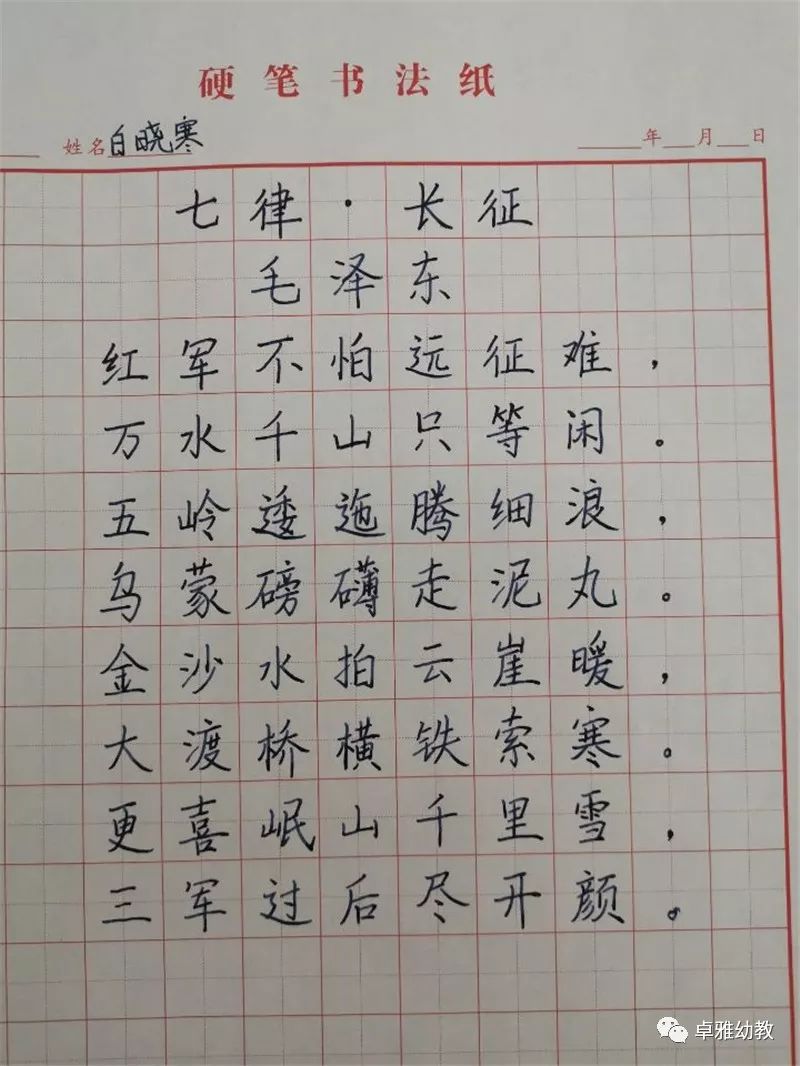 硬笔书法纸
姓名白晓寒 年 月 日
七律·长征
毛泽东
红军不怕远征难，
万水千山只等闲。
五岭逶迤腾细浪，
乌蒙磅礴走泥丸。
金沙水拍云崖暖，
大渡桥横铁索寒。
更喜岷山千里雪，
三军过后尽开颜。
卓雅幼教